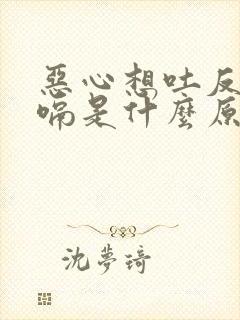 惡心想吐反
嗝是什麼原
沈夢琦